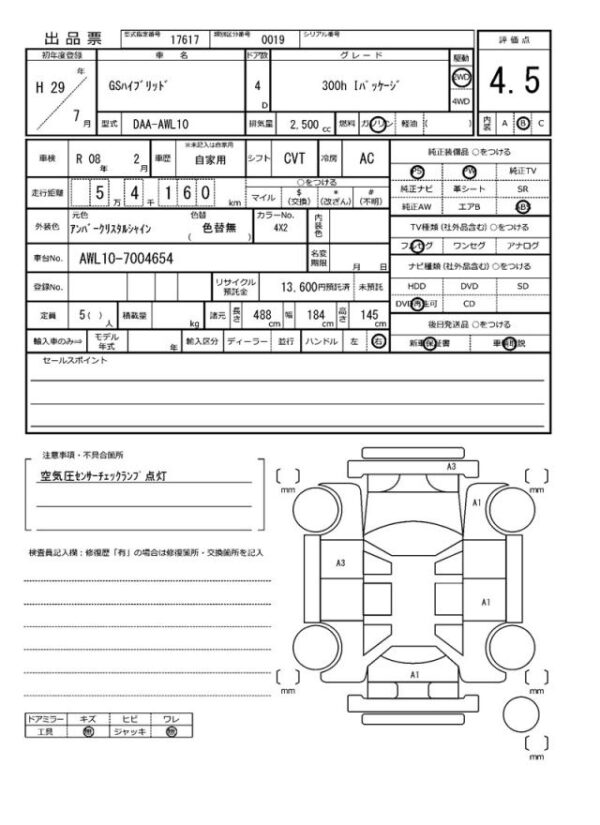 出品票 型式指定番号 17617 類別区分番号 0019 シリアル番号
初年度登録 車名 ドア数 グレード 駆動 評価点
H 29 年 7 月 GSハイブリッド 4 D 300h Iパッケージ 2WD 4WD 4.5
型式 DAA-AWL10 排気量 2,500 cc 燃料 ガソリン 軽油 ( ) 内装 A B C
車検 R 08 年 2 月 車歴 ※未記入は自家用 自家用 シフト CVT 冷房 AC
純正装備品 ○をつける
PS PW 純正TV
純正ナビ 革シート SR
純正AW エアB ABS
走行距離 5 万 4 千 1 6 0 km ○をつける マイル $ (交換) * (改ざん) # (不明)
外装色 元色 アンバークリスタルシャイン 色替 ( 色替無 ) カラーNo. 4X2 内装色
TV種類 (社外品含む) ○をつける
フルセグ ワンセグ アナログ
車台No. AWL10-7004654 名変期限 月 日
ナビ種類 (社外品含む) ○をつける
HDD DVD SD
DVD再生可 CD
登録No. リサイクル預託金 13,600円預託済 未預託
定員 5 ( ) 人 積載量 kg 諸元 長さ 488 cm 幅 184 cm 高さ 145 cm
後日発送品 ○をつける
新車保証書 車輌取説
輸入車のみ⇒ モデル年式 年 輸入区分 ディーラー 並行 ハンドル 左 右
セールスポイント
注意事項・不具合箇所
空気圧センサーチェックランプ点灯
検査員記入欄:修復歴「有」の場合は修復箇所・交換箇所を記入
A3
A1
A3
A1
A1
mm
mm
mm
mm
mm
ドアミラー キズ ヒビ ワレ
工具 無 ジャッキ 無